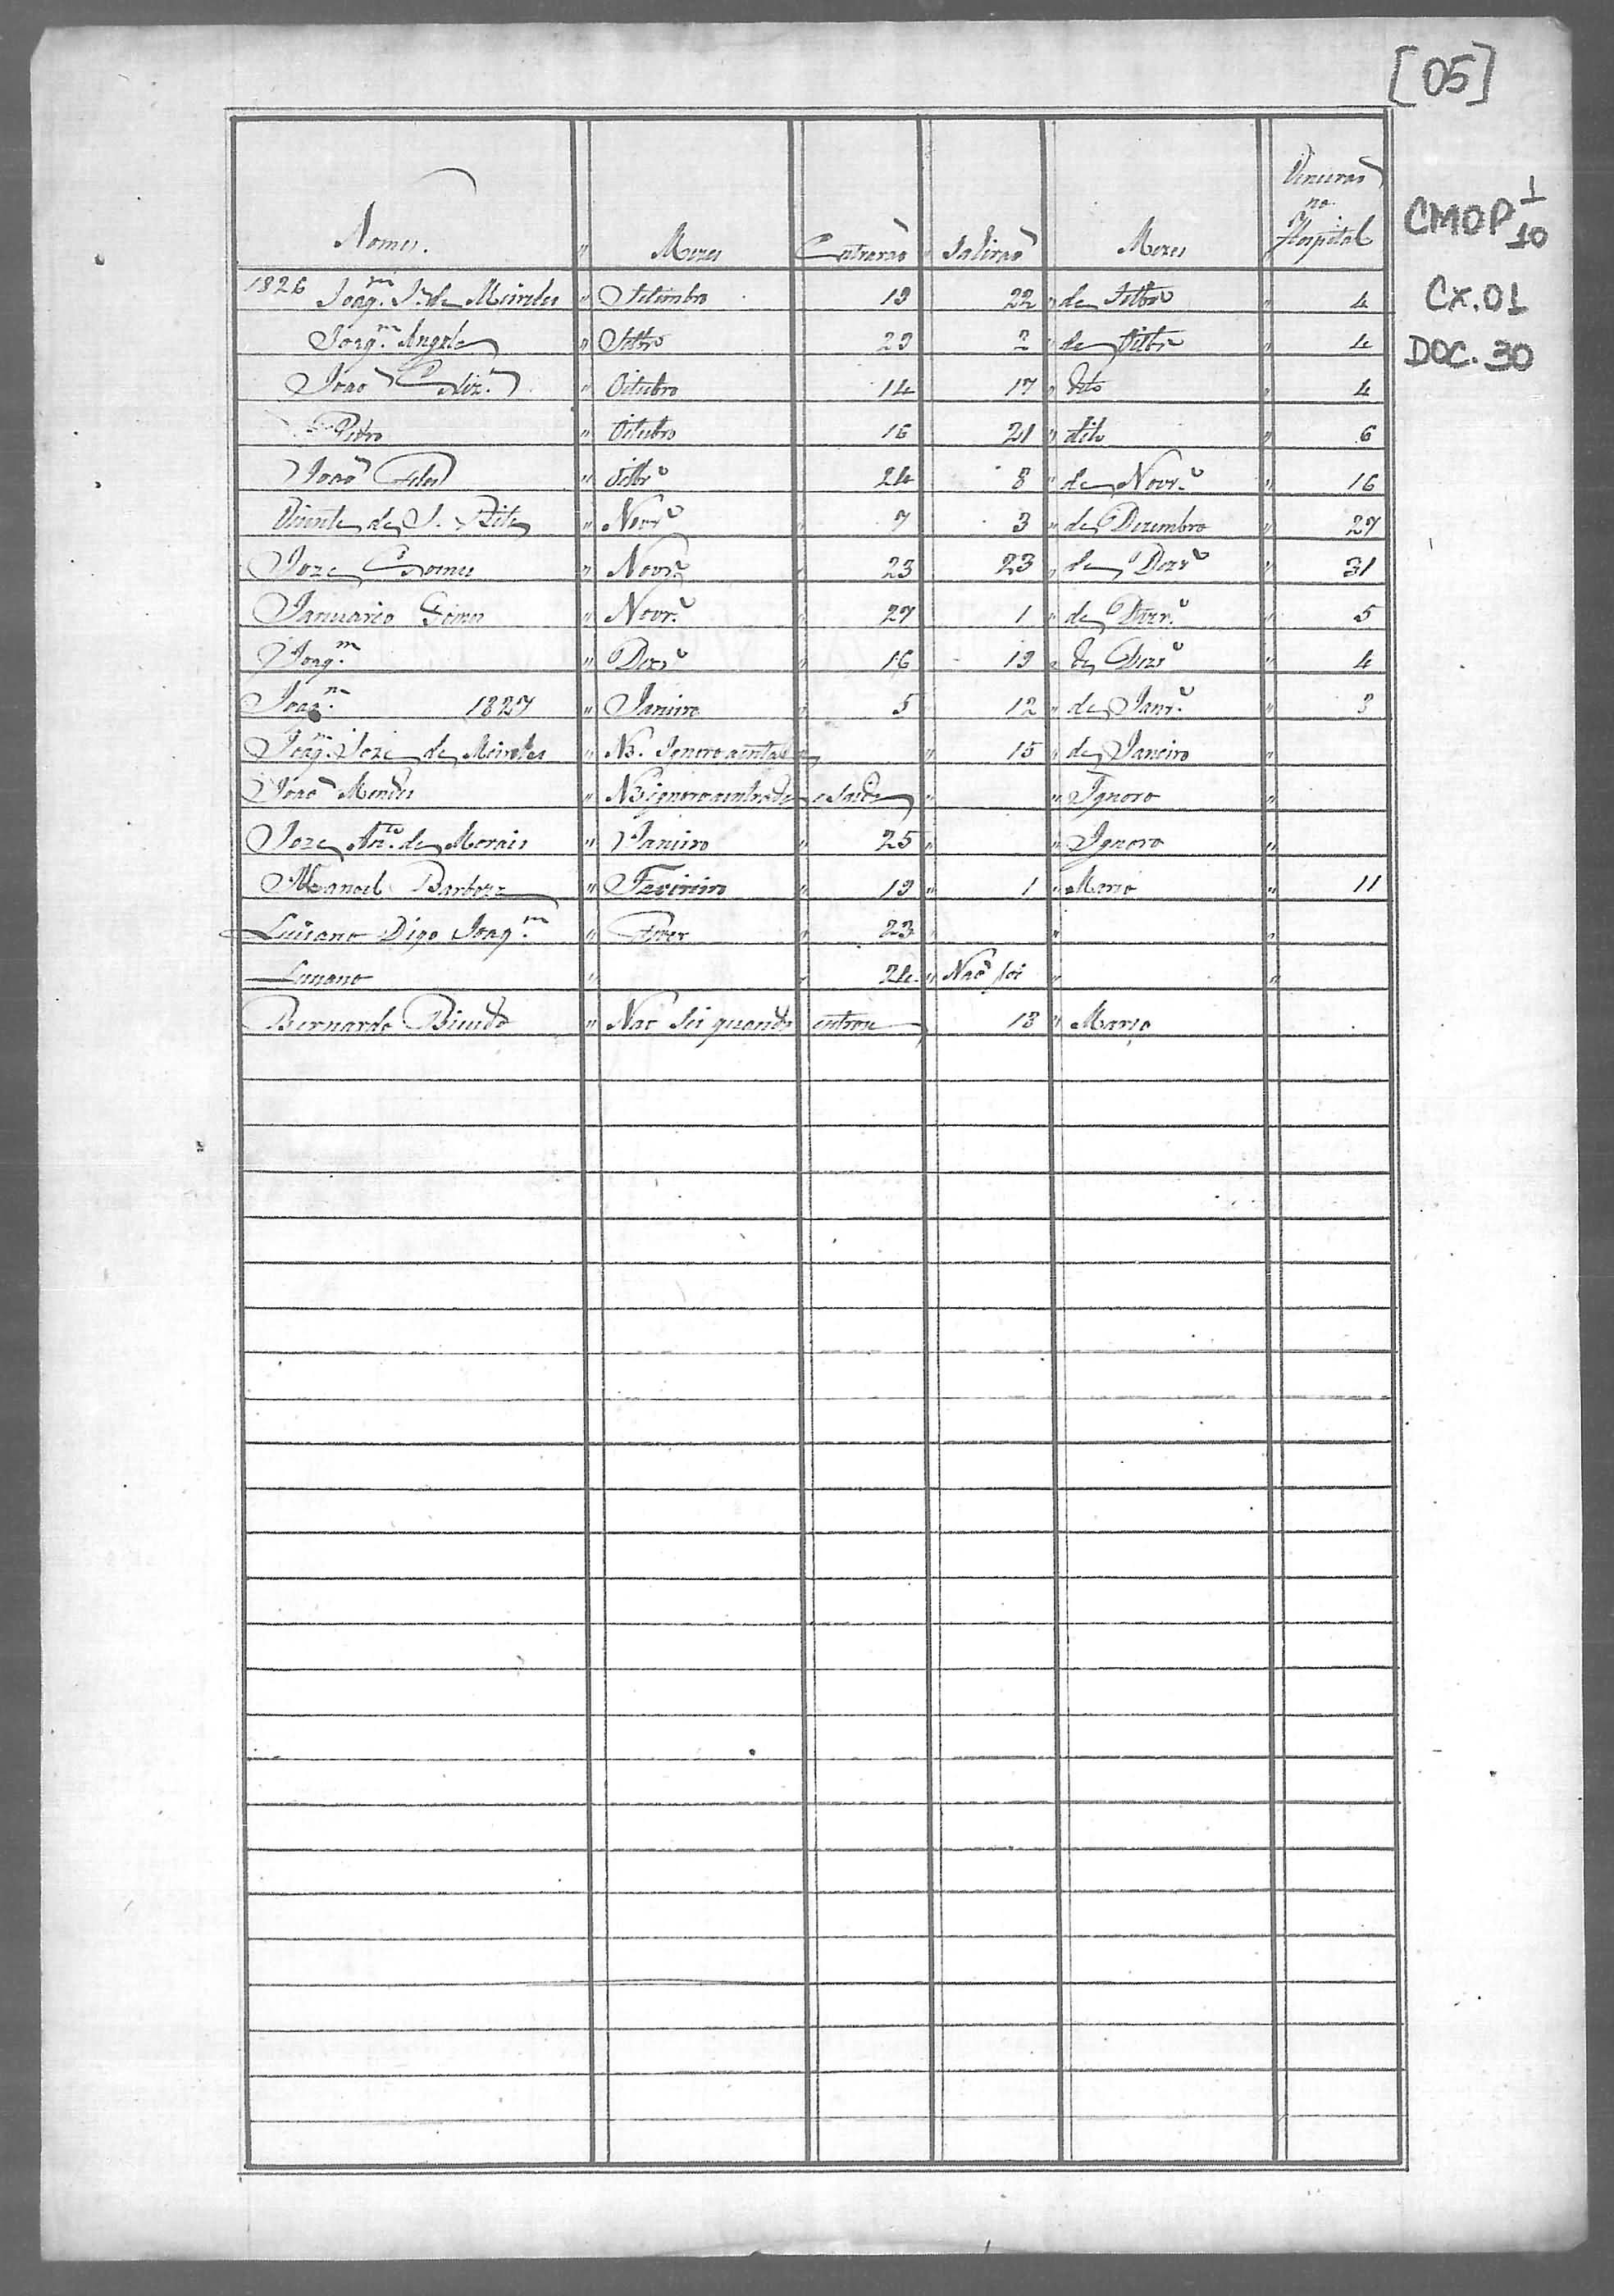 [05]
CMOP 1/10
CX.01
DOC. 30
Nomes. " Mezes Entrarão " Sahirão Mezes Vencerão no Hospital
1826 Joaq.m J.e de Meireles " Setembro 19 22 " de Setbr.o " 4
Joaq.m Angola " Setbr.o 29 2 " de Oitbr.o " 4
João " Oitubro 14 17 " dito " 4
Pedro " Oitubro 16 21 " dito " 6
João " Oitbr.o 24 8 " de Novr.o " 16
Vicente de S. Rita " Novr.o " 7 3 " de Dezembro " 27
Joze Gomes " Novr.o " 23 23 " de Dezr.o " 31
Januario Gomes " Novr.o " 27 1 " de Dezr.o " 5
Joaq.m " Dezr.o " 16 19 " de Dezr.o " 4
Joaq.m 1827 " Janeiro " 5 12 " de Janr.o " 8
Joaq.m Joze de Meireles " NB. Ignoro a entrada " 15 " de Janeiro "
João Mendes " NB ignoro a entrada e saida " " Ignoro "
Joze An.to de Morais " Janeiro " 25 " " Ignoro "
Manoel Barboza " Fevereiro " 19 " 1 " Março " 11
Luciano Digo Joaq.m " Fever " 23 " " "
Luciano " " 24 " Não foi " "
Bernardo Bicudo " Não sei quando entrou 18 " Março